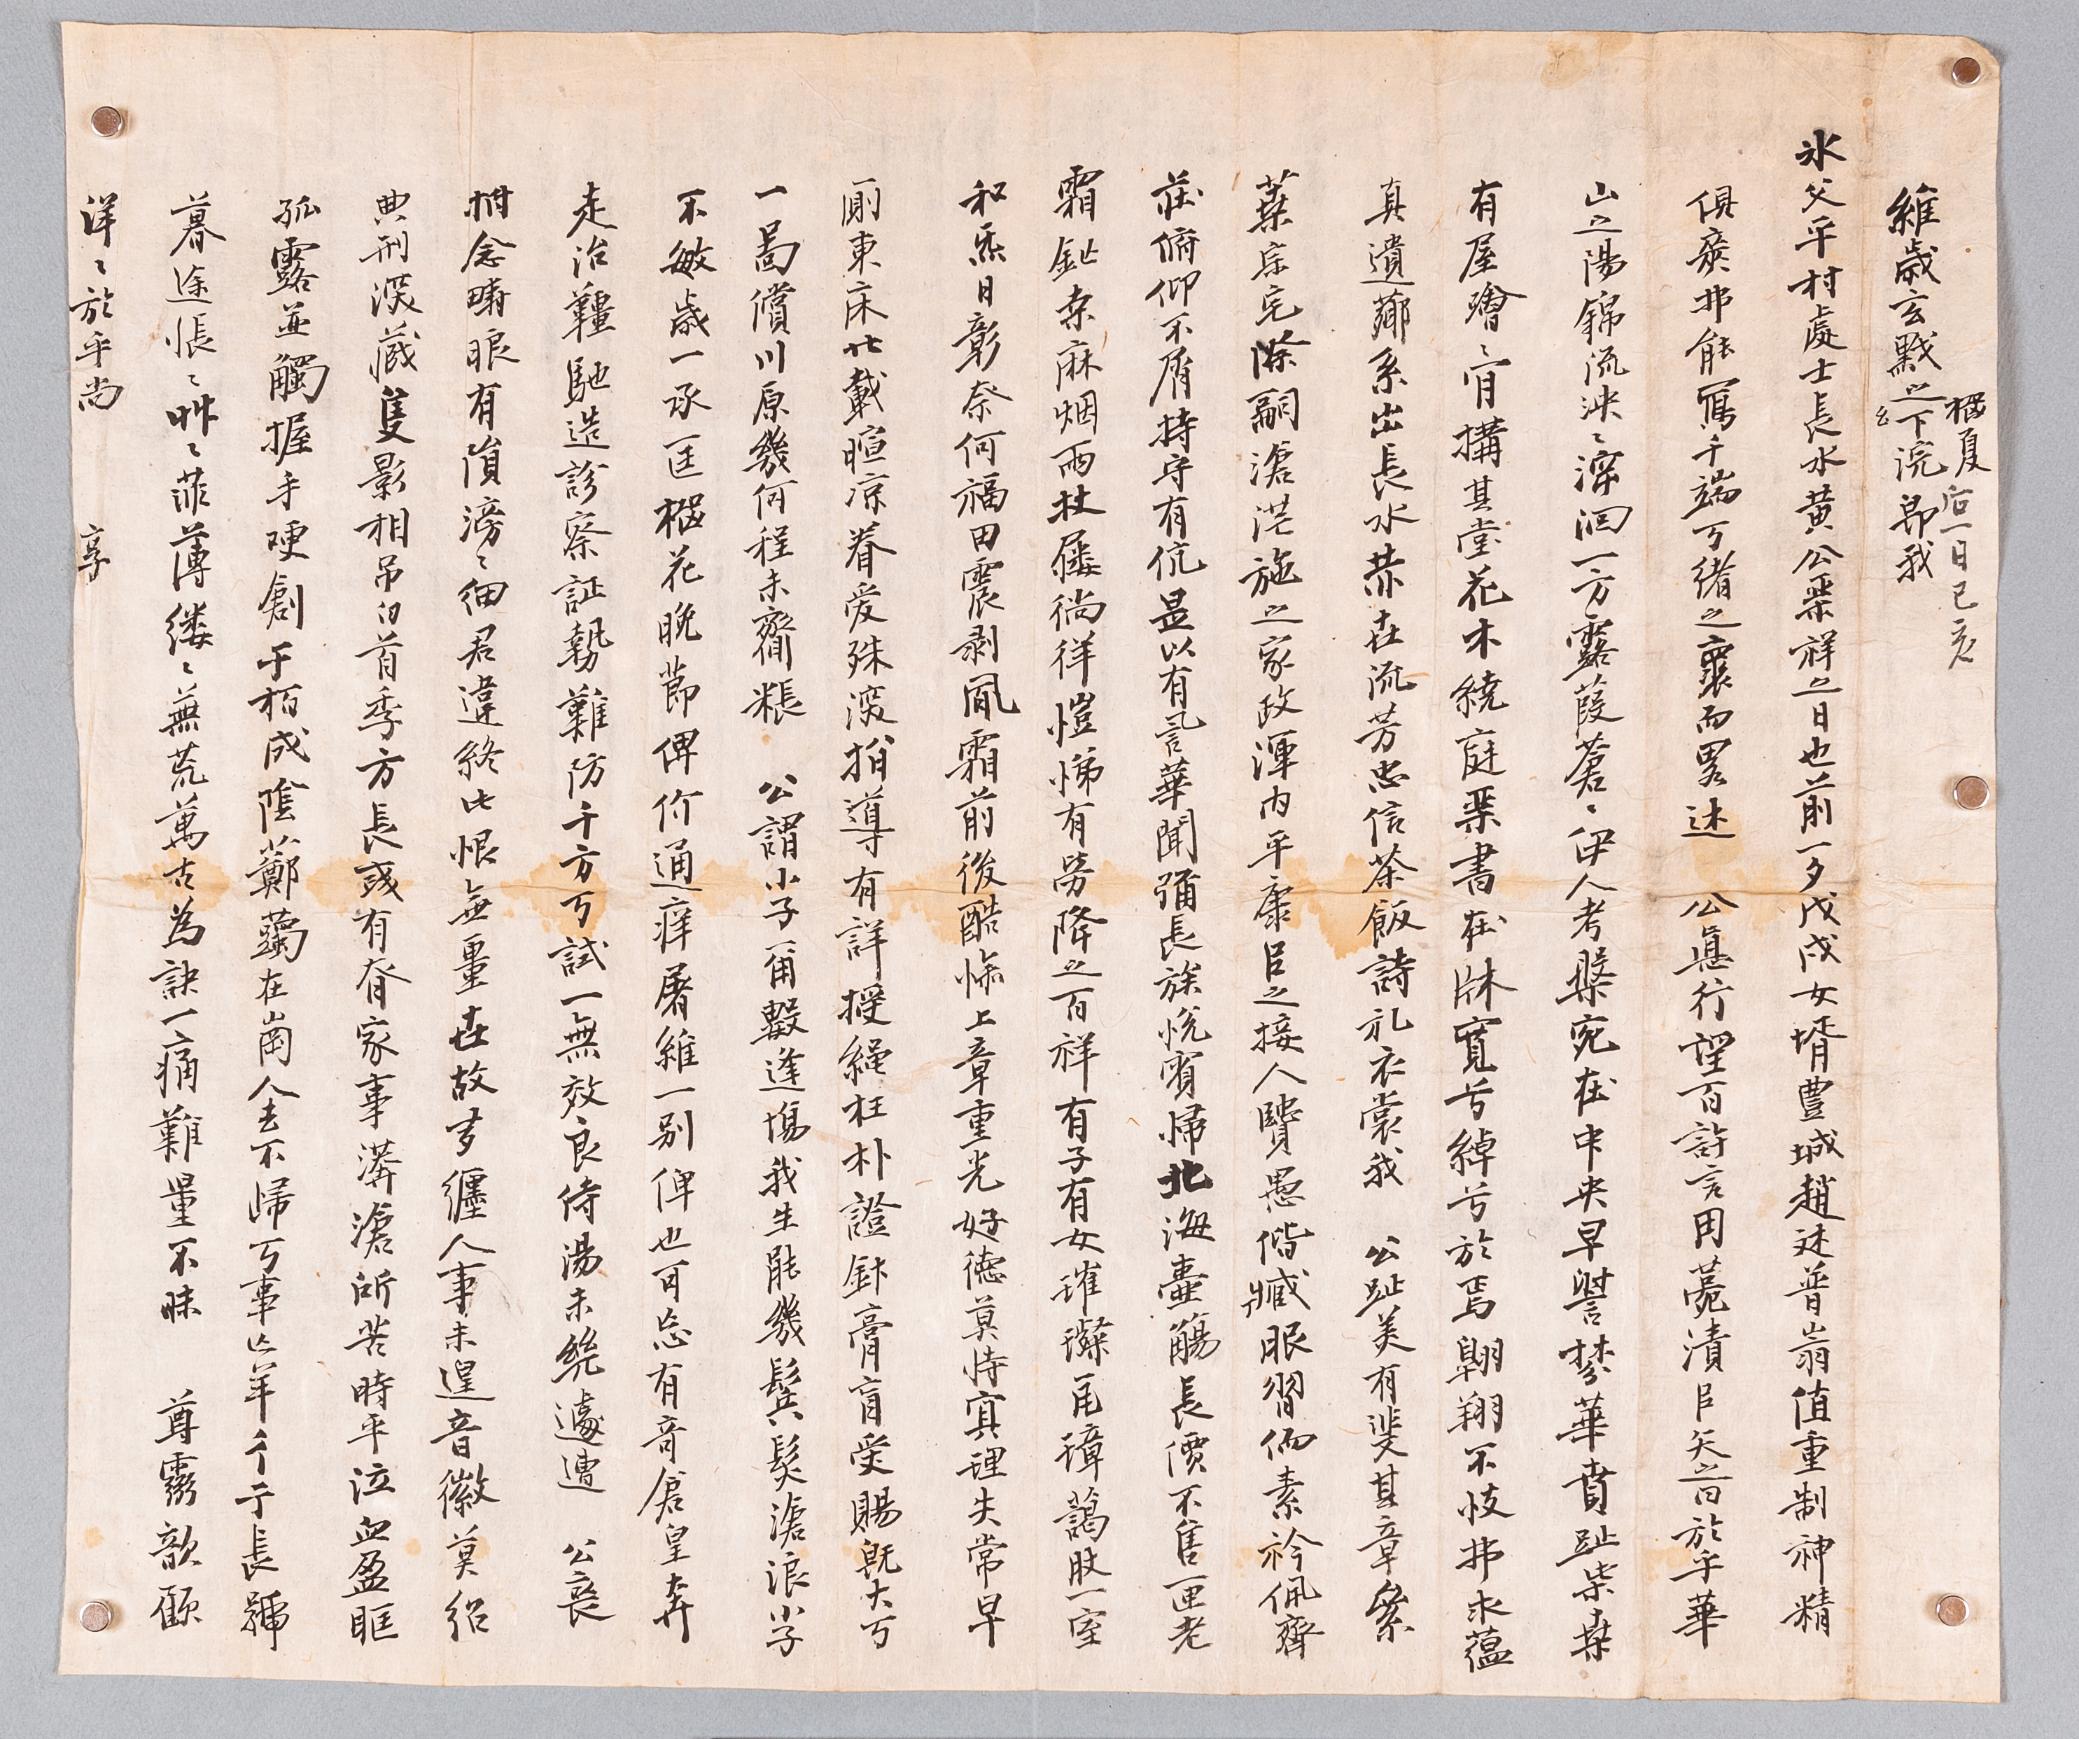 維歲玄黓之下浣卽我
榴夏后一日己亥
氷父平村處士長水黃公䄎祥之日也前一夕戊戌女壻豊城趙述普嵡值重制神精
俱瘁弗能寫千端万緖之衷而畧述 公懿行望百許言用菀漬臣矢之曰於乎華
山之陽錦流泱〻濴洄一方露葭蒼〻伊人考槃宛在中央早謦棼華賁趾柴桑
有屋噲〻肯搆其堂花木繞庭琹書在牀寬兮綽兮於焉翶翔不忮弗求蘊
真遺薌系出長水恭在流芳忠信茶飯詩礼衣裳我 公趾美有斐其章縈
葉宗宅條嗣滄茫施之家政渾內平康臣之接人賢愚偕臧眼習俩素衿佩齊
莊俯仰不屑持守有伉显以有訁華聞彌長族悅賓歸北海壷觴長價不售一匣老
霜鉍桒麻烟雨杖屨徜徉愷悌有勞降之百祥有子有女璀璨瓦璋藹肢一室
和炁日彰奈何福田震剥風霜前後酷慘上章重光好德莫恃寘理失常早
厠東床廿載暄凉眷爱殊深指導有詳授繩枉朴證鉢膏肓受賜旣大万
一曷償川原幾何程未齎粻 公謂小子爾數逢塲我生能幾鬓髮滄浪小子
不敏歲一承匡榴花晩節俾价通痒屠維一別俾也可忘有奇倉皇奔
走治韁馳造診察証勢難防千方万試一無效良侍湯未繞遽遭 公喪
柎念疇眼有隕滂〻細君違終此恨無量世故多纏人事未遑音徽莫紹
典刑深藏隻影相吊白首季方長彧有脊家事溝滄所苦時平泣血盈眶
孤露並觸握手哽創于栢成陰薺蘜在崗人去不歸万事亡羊彳亍長號
暮途悵〻卝〻菲薄縷〻蕪荒萬古爲訣一痛難量不昧 尊靈歆顧
洋〻於乎尚 享